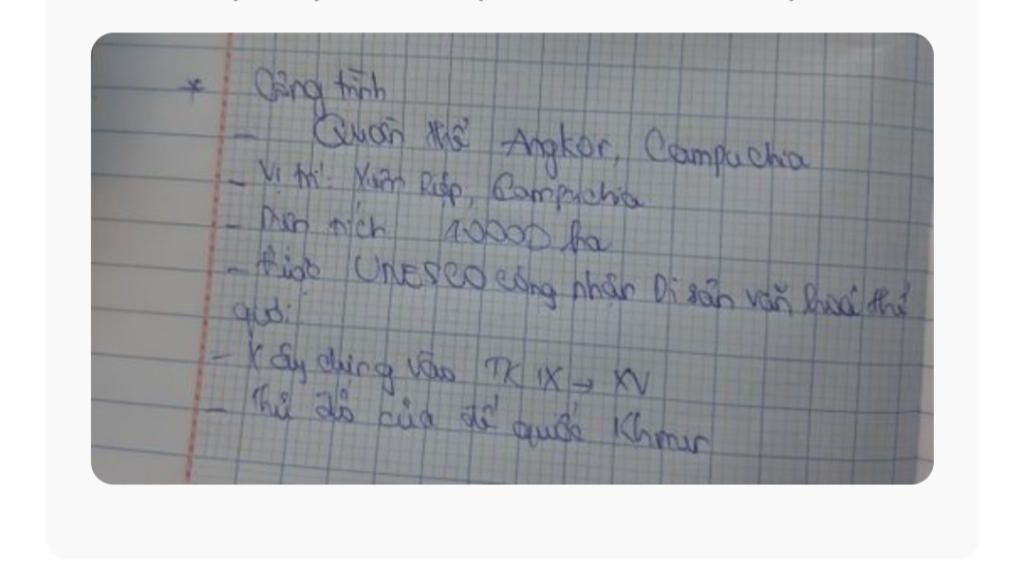 * Công trình
- Quần thể Angkor, Campuchia
- Vị trí: Xiêm Riệp, Campuchia
- Diện tích 40000 ha
- Được UNESCO công nhận Di sản văn hoá thế
giới
- Xây dựng vào TK IX → XV
- Thủ đô của đế quốc Khmer